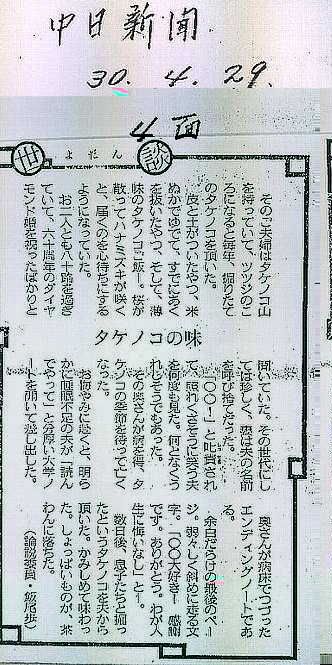 中日新聞
30. 4. 29.
4面
世談
よだん
タケノコの味
そのご夫婦はタケノコ山
を持っていて、ツツジのこ
ろになると毎年、掘りたて
のタケノコを頂いた。
皮と土がついたやつ、米
ぬかでゆでて、すでにあく
を抜いたやつ、そして、薄
味のタケノコご飯−。桜が
散ってハナミズキが咲く
と、届くのを心待ちにする
ようになっていた。
お二人とも八十路を過ぎ
ていて、六十周年のダイヤ
モンド婚を祝ったばかりと
聞いていた。その世代にし
ては珍しく、妻は夫の名前
を呼び捨てだった。
「〇〇！」と叱責され
て、照れくさそうに笑う夫
を何度も見た。何となくう
れしそうでもあった。
その奥さんが病を得、タ
ケノコの季節を待って亡く
なった。
お悔やみに急くと、明ら
かに睡眠不足の夫が「読ん
でやって」と分厚い大学ノ
ートを開いて差し出した。
奥さんが病床でつづった
エンディングノートであ
る。
余白だらけの最後のペー
ジ、弱々しく斜めに走る文
字。「〇〇大好き！　感謝
です。ありがとう。わが人
生に悔いなし」と−。
数日後、息子たちと掘っ
たというタケノコを夫から
頂いた。かみしめて味わっ
た。しょっぱいものが、茶
わんに落ちた。
（論説委員・飯尾歩）